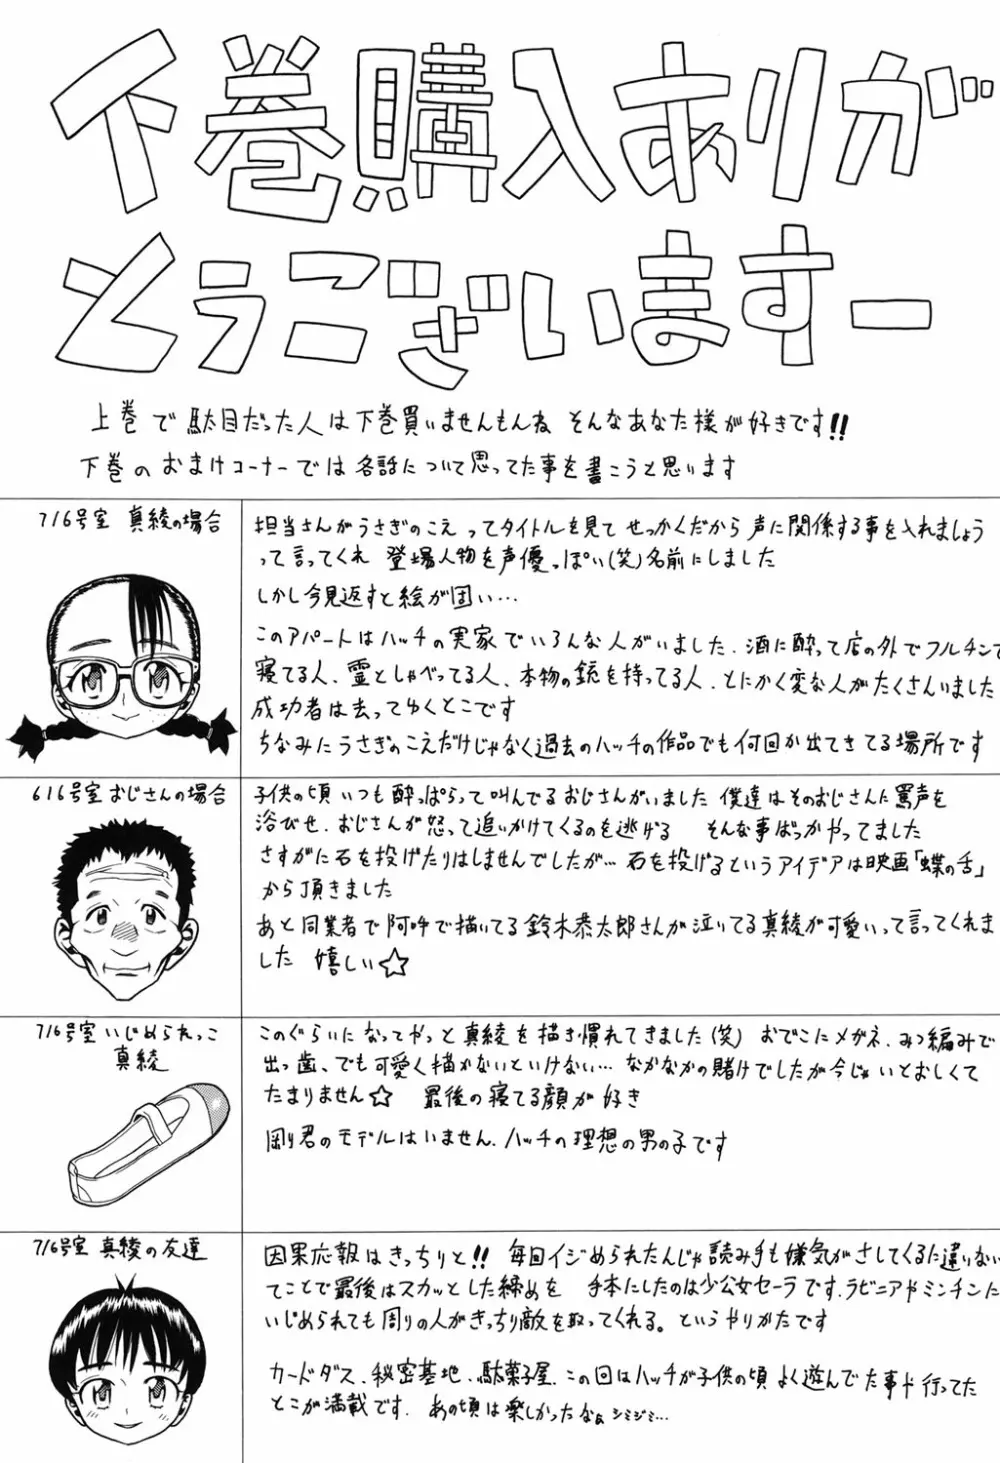 下巻購入ありが
とうございますー
上巻で駄目だった人は下巻買いませんもんね そんなあなた様が好きです!!
下巻のおまけコーナーでは各話について思ってた事を書こうと思います
716号室 真綾の場合
担当さんがうさぎのこえ ってタイトルを見て せっかくだから 声に関係する事を入れましょう
って言ってくれ 登場人物を声優っぽい(笑)名前にしました
しかし今見返すと絵が固い…
このアパートはハッチの実家でいろんな人がいました.酒に酔って店の外でフルチンで
寝てる人、霊としゃべってる人、本物の銃を持ってる人.とにかく変な人がたくさんいました
成功者は去ってゆくとこです
ちなみにうさぎのこえだけじゃなく過去のハッチの作品でも何回か出てきてる場所です
616号室 おじさんの場合
子供の頃 いつも酔っぱらって叫んでるおじさんがいました 僕達はそのおじさんに罵声を
浴びせ.おじさんが怒って追いかけてくるのを逃げる そんな事ばっかやってました
さすがに石を投げたりはしませんでしたが… 石を投げるというアイデアは映画「蝶の舌」
から頂きました
あと同業者で阿吽で描いてる鈴木恭太郎さんが泣いてる真綾が可愛いって言ってくれま
した 嬉しい☆
716号室 いじめられっこ
真綾
このぐらいになってやっと真綾を描き慣れてきました(笑) おでこにメガネ.みつ編みで
出っ歯、でも可愛く描かないといけない… なかなかの賭けでしたが今じゃいとおしくて
たまりません☆ 最後の寝てる顔が好き
剛君のモデルはいません.ハッチの理想の男の子です
716号室 真綾の友達
因果応報はきっちりと!! 毎回イジめられたんじゃ読み手も嫌気がさしてくるに違いない
てことで最後はスカッとした締めを 手本にしたのは少公女セーラです.ラビニアやミンチンに
いじめられても周りの人がきっちり敵を取ってくれる。というやりかたです
カードダス.秘密基地.駄菓子屋.この回はハッチが子供の頃よく遊んでた事や行ってた
とこが満載です.あの頃は楽しかったなぁ シミジミ…